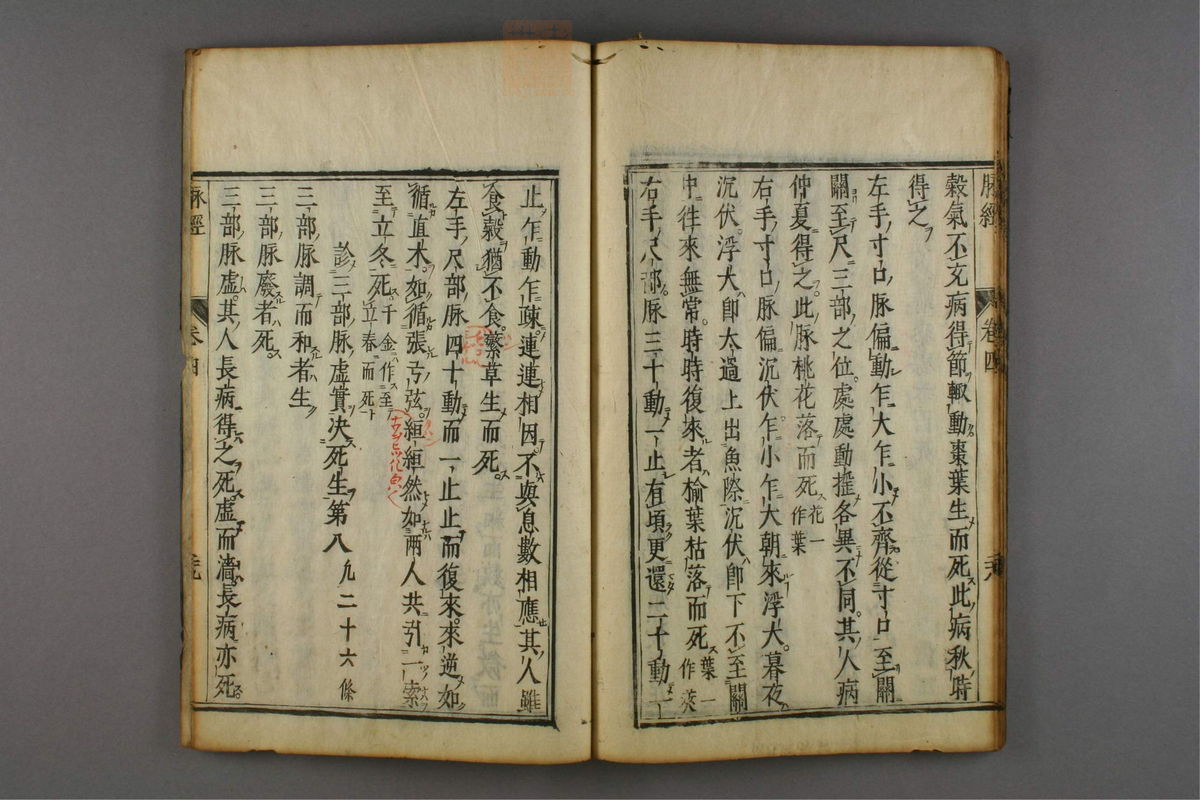 脉經 卷四 六
穀氣不充病得節輙動棗葉生而死此病秋時
得之
左手寸口脉偏動乍大乍小不齊從寸口至關
關至尺三部之位處處動揺各異不同其人病
仲夏得之此脉桃花落而死花一作葉
右手寸口脉偏沉伏乍小乍大朝來浮大暮夜
沉伏浮大卽太過上出魚際沉伏卽下不至關
中徃來無常時時復來者榆葉枯落而死葉一作莢
右手尺部脉三十動一止有頃更還二十動一
止乍動乍疎連連相因不與息數相應其人雖
食穀猶不愈蘩草生而死
左手尺部脉四十動而一止止而復來來逆如
循直木如循張弓弦緪緪然如兩人共引一索
至立冬死千金作至立春而死
診三部脉虛實决死生第八 凢二十六條
三部脉調而和者生
三部脉廢者死
三部脉虛其人長病得之死虛而濇長病亦死
脉經 卷四